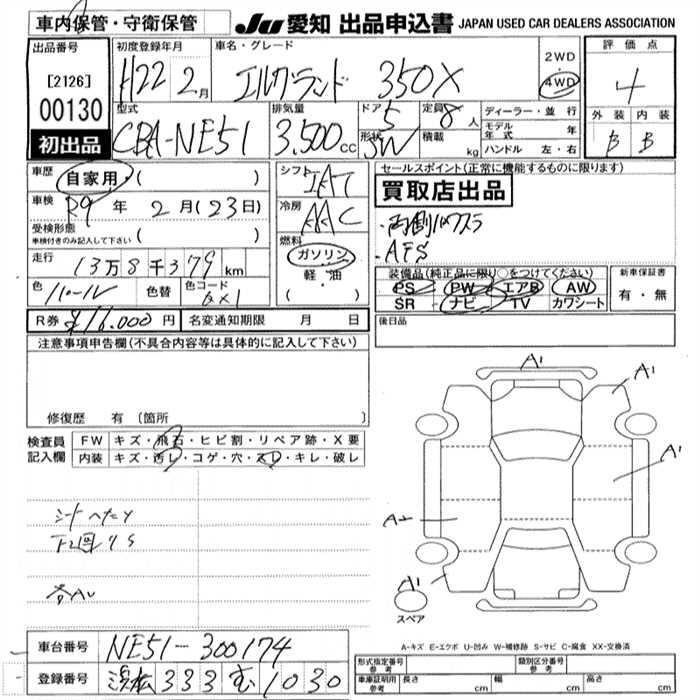 車内保管・守衛保管
JU 愛知 出品申込書 JAPAN USED CAR DEALERS ASSOCIATION
出品番号
[2126]
00130
初出品
初度登録年月
H22 2月
車名・グレード
エルグランド 350X
2WD
4WD
評価点
4
外装 内装
B B
型式
CBA-NE51
排気量
3.500cc
ドア
5
形状
SW
定員 8人
積載 kg
ディーラー・並行
モデル年式 年
ハンドル 左・右
車歴
自家用・( )
車検
R9年 2月(23日)
受検形態
車検付きのみ記入して下さい ( )
走行
13万8千379km
色 パール 色替 色コード QX1
シフト
IAT
冷房
AAC
燃料
ガソリン
軽・油
( )
セールスポイント(正常に機能するものに限ります)
買取店出品
・両側パワスラ
・AFS
装備品(純正品に限り○をつけてください)
PS PW エアB AW
SR ナビ TV カワシート
新車保証書
有・無
R券 ¥16.000円 名変通知期限 月 日
後日品
注意事項申告欄(不具合内容等は具体的に記入して下さい)
修復歴 有 [箇所
検査員記入欄
FW キズ・飛石・ヒビ割・リペア跡・X要
内装 キズ・汚レ・コゲ・穴・スレ・キレ・破レ
シートへたり
A1
A1
A1
A2
A1
スペア
A-キズ E-エクボ U-凹み W-補修跡 S-サビ C-腐食 XX-交換済
車台番号 NE51-300174
登録番号 浜松 333 む 1030
型式指定番号 参考
類別区分番号 参考
車庫証明用 参考 長さ cm 幅 cm 高さ cm